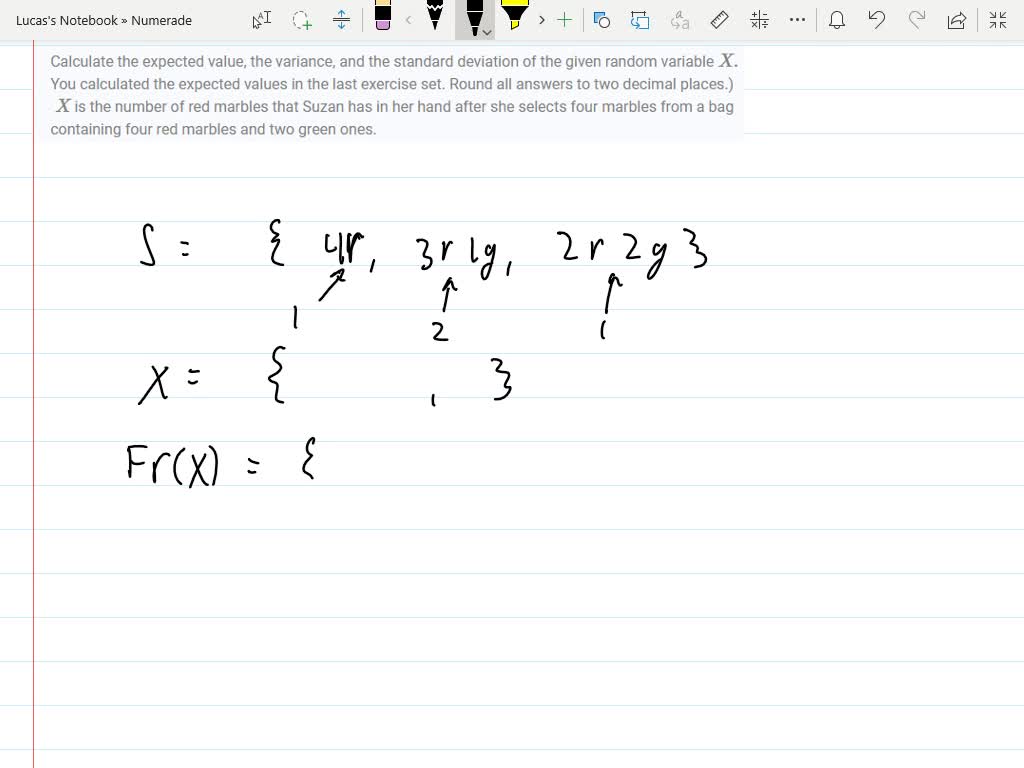 Lucas's Notebook » Numerade
Calculate the expected value, the variance, and the standard deviation of the given random variable X.
You calculated the expected values in the last exercise set. Round all answers to two decimal places.)
X is the number of red marbles that Suzan has in her hand after she selects four marbles from a bag
containing four red marbles and two green ones.
S = { 4r, 3r1g, 2r2g }
1 2 1
X = { , }
Fr(X) = {